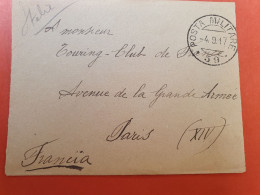 Italie
A monsieur
POSTA MILITARE
-4.9.17
59
Touring-Club de
Avenue de la Grande Armée
Paris (XIV)
Francia